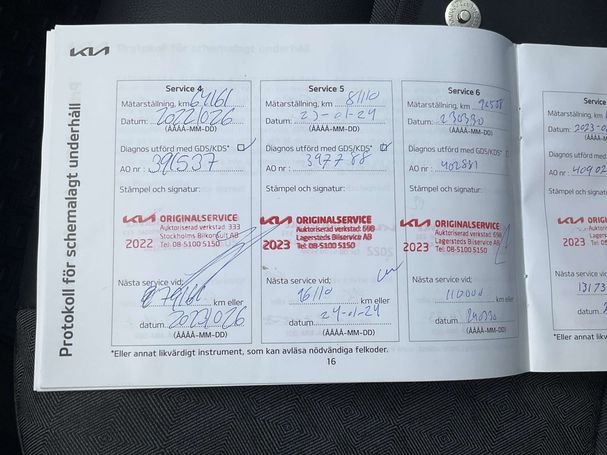 KIA
Protokoll för schemalagt underhåll
Service 4
Mätarställning, km 64161
Datum: 20221026
(ÅÅÅÅ-MM-DD)
Diagnos utförd med GDS/KDS*
AO nr: 391537
Stämpel och signatur:
KIA ORIGINALSERVICE
Auktoriserad verkstad 333
Stockholms Bilkonsult AB
2022 Tel: 08-5100 5150
Nästa service vid;
79161 km eller
datum 20231026
(ÅÅÅÅ-MM-DD)
Service 5
Mätarställning, km 81110
Datum: 23-01-24
(ÅÅÅÅ-MM-DD)
Diagnos utförd med GDS/KDS*
AO nr: 397788
Stämpel och signatur:
KIA ORIGINALSERVICE
Auktoriserad verkstad 698
Lagersteds Bilservice AB
2023 Tel: 08-5100 5150
Nästa service vid;
96110 km eller
datum 24-01-24
(ÅÅÅÅ-MM-DD)
Service 6
Mätarställning, km
Datum: 230330
(ÅÅÅÅ-MM-DD)
Diagnos utförd med GDS/KDS*
AO nr: 402881
Stämpel och signatur:
KIA ORIGINALSERVICE
Auktoriserad verkstad 698
Lagersteds Bilservice AB
2023 Tel: 08-5100 5150
Nästa service vid;
110000 km eller
datum 240330
(ÅÅÅÅ-MM-DD)
*Eller annat likvärdigt instrument, som kan avläsa nödvändiga felkoder.
16
Service
Mätarställning, k
Datum: 2023-0
(ÅÅÅÅ-M
Diagnos utförd m
AO nr: 40902
Stämpel och signa
KIA ORIGI
Auktori
Lagers
2023 Tel: 08
Nästa service vid
13173
datum
(ÅÅÅÅ-M
*Eller annat likv